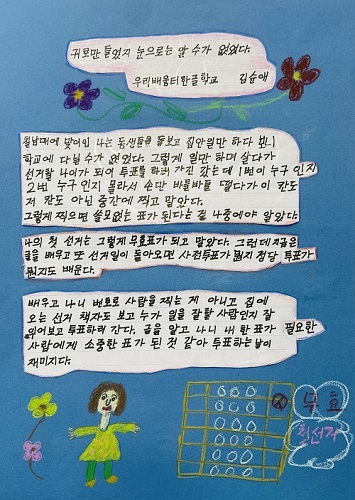 귀로만 들었지 눈으로는 알 수가 없었다.
우리배움터한글학교 김순애
월남매에 맏이인 나는 동생들을 돌보고 집안일만 하다 보니
학교에 다닐 수가 없었다 그렇게 일만 하며 살다가
선거할 나이가 되어 투표를 하러 가긴 갔는데 1번이 누구 인지
2번 누구 인지 몰라서 손만 바들바들 떨다가 이 칸도
저 칸도 아닌 중간에 찍고 말았다.
그렇게 찍으면 쓸모없는 표가 된다는 걸 나중에야 알았다
나의 첫 선거는 그렇게 무효표가 되고 말았다. 그런데 지금은
글을 배우고 또 선거일이 돌아오면 사전투표가 뭔지 정당 투표가
뭔지도 배운다.
배우고 나니 번호로 사람을 찍는 게 아니고 집에
오는 선거 책자도 보고 누가 일을 잘할 사람인지 잘
읽어보고 투표하러 간다. 글을 알고 나니 내 한 표가 필요한
사람에게 소중한 표가 된 것 같아 투표하는 날이
재미지다.
무효